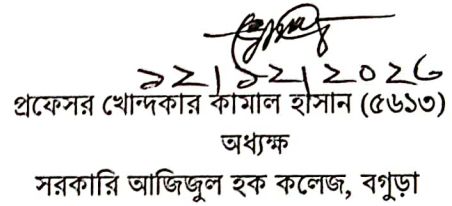 ১২|১২|২০২৫
প্রফেসর খোন্দকার কামাল হাসান (৫৬১৩)
অধ্যক্ষ
সরকারি আজিজুল হক কলেজ, বগুড়া